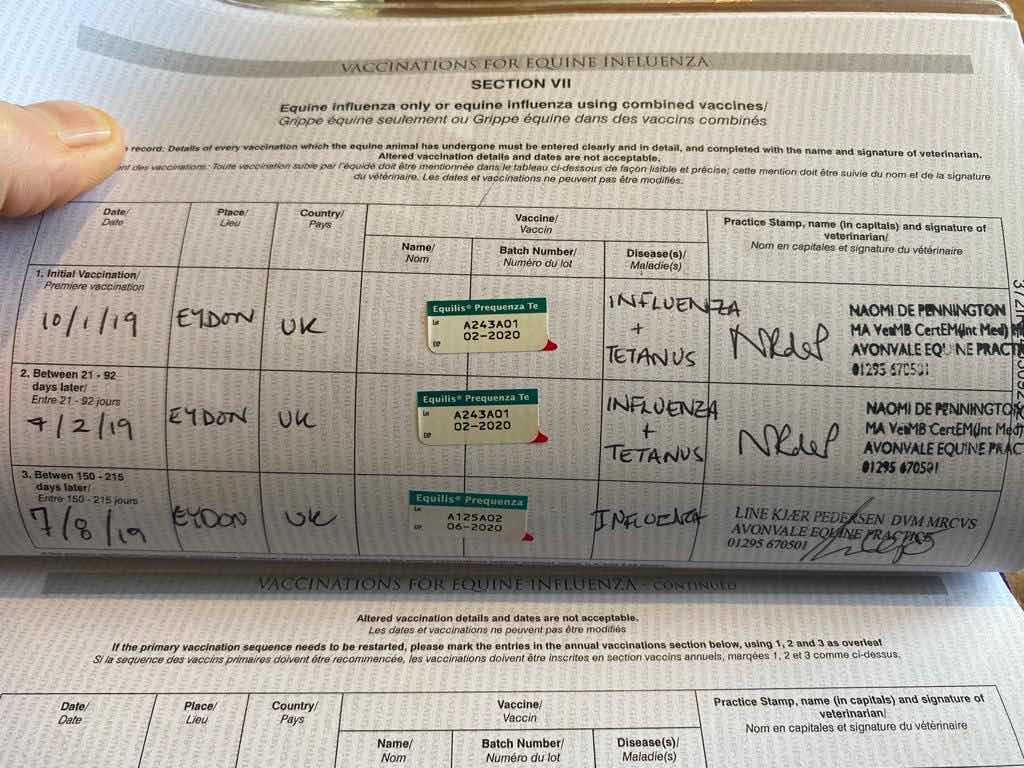 VACCINATIONS FOR EQUINE INFLUENZA
SECTION VII
Equine influenza only or equine influenza using combined vaccines/
Grippe équine seulement ou Grippe équine dans des vaccins combinés
record: Details of every vaccination which the equine animal has undergone must be entered clearly and in detail, and completed with the name and signature of veterinarian.
Altered vaccination details and dates are not acceptable.
des vaccinations: Toute vaccination subie par l'équidé doit être mentionnée dans le tableau ci-dessous de façon lisible et précise; cette mention doit être suivie du nom et de la signature
du vétérinaire. Les dates et vaccinations ne peuvent pas être modifiés.
Date/
Date
Place/
Lieu
Country/
Pays
Vaccine/
Vaccin
Name/
Nom
Batch Number/
Numéro du lot
Disease(s)/
Maladie(s)
Practice Stamp, name (in capitals) and signature of
veterinarian/
Nom en capitales et signature du vétérinaire
1. Initial Vaccination/
Premiere vaccination
10/1/19
EYDON
UK
Equilis® Prequenza Te
Lot
A243A01
EXP
02-2020
INFLUENZA
+
TETANUS
NAOMI DE PENNINGTON
MA VetMB CertEM(Int Med)
AVONVALE EQUINE PRACT
01295 670501
2. Between 21 - 92
days later/
Entre 21 - 92 jours
7/2/19
EYDON
UK
Equilis® Prequenza Te
Lot
A243A01
EXP
02-2020
INFLUENZA
+
TETANUS
NAOMI DE PENNINGTON
MA VetMB CertEM(Int Med)
AVONVALE EQUINE PRAC
01295 670501
3. Betwen 150 - 215
days later/
Entre 150 - 215 jours
7/8/19
EYDON
UK
Equilis® Prequenza
Lot
A125A02
EXP
06-2020
INFLUENZA
LINE KJÆR PEDERSEN DVM MRCVS
AVONVALE EQUINE PRACTICE
01295 670501
VACCINATIONS FOR EQUINE INFLUENZA - CONTINUED
Altered vaccination details and dates are not acceptable.
Les dates et vaccinations ne peuvent pas être modifiés
If the primary vaccination sequence needs to be restarted, please mark the entries in the annual vaccinations section below, using 1, 2 and 3 as overleaf
Si la sequence des vaccins primaires doivent être recommencée, les vaccinations doivent être inscrites en section vaccins annuels, marqées 1, 2 et 3 comme ci-dessus.
Date/
Date
Place/
Lieu
Country/
Pays
Vaccine/
Vaccin
Name/
Nom
Batch Number/
Numéro du lot
Disease(s)/
Maladie(s)
Practice Stamp, name (in capitals) and signature of
veterinarian/
Nom en capitales et signature du vétérinaire